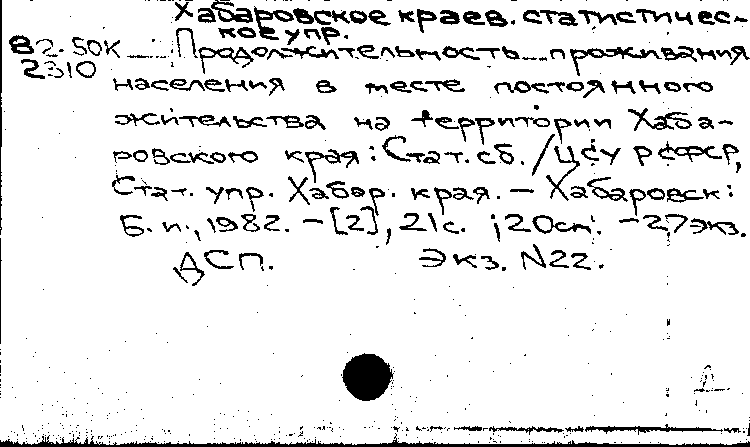 Хабаровское краев. статистичес-
кое упр.
82-50К Продолжительность проживания
2310
населения в месте постоянного
жительства на территории Хаба-
ровского края: Стат. сб. / ЦСУ РСФСР,
Стат. упр. Хабар. края. — Хабаровск:
Б. и., 1982. — [2], 21 с. ; 20 см. — 27 экз.
ДСП. Экз. N22.